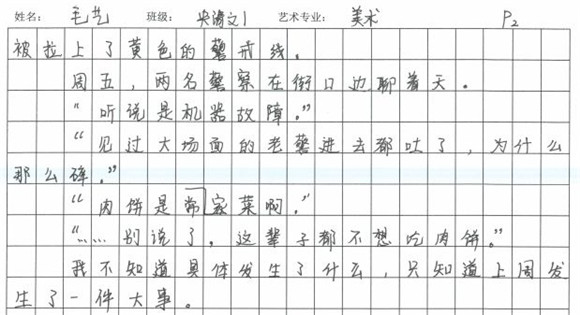 姓名： 毛艺 班级： 央清文1 艺术专业： 美术 P2
被拉上了黄色的警戒线。
周五，两名警察在街口边聊着天。
“听说是机器故障。”
“见过大场面的老警进去都吐了，为什么
那么碎。”
“肉饼是常家菜啊。”
“……别说了，这辈子都不想吃肉饼。”
我不知道具体发生了什么，只知道上周发
生了一件大事。